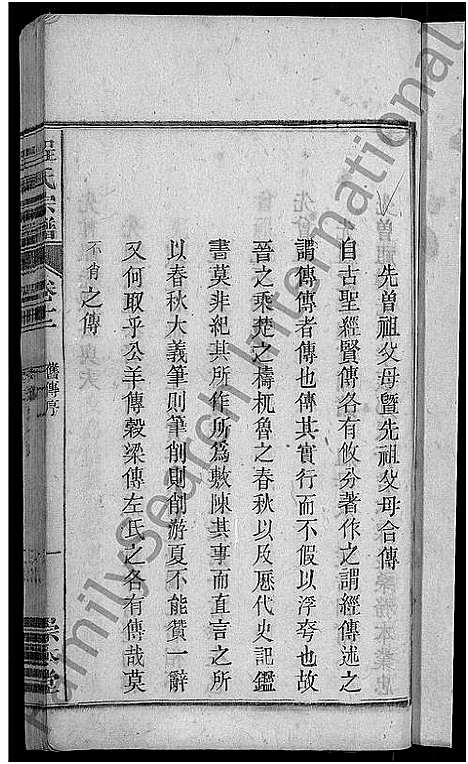 先曾祖父母曁先祖父母合傳
自古聖經賢傳各有攸分著作之謂經傳述之
謂傳傳者傳也傳其實行而不假以浮夸也故
晉之乘楚之檮杌魯之春秋以及歷代史記鑑
書莫非紀其所作所爲敷陳其事而直言之所
以春秋大義筆則筆削則削游夏不能贊一辭
又何取乎公羊傳穀梁傳左氏之各有傳哉莫
不肖之傳
程氏宗譜
卷十二
舊傳序
一
Familysearch International